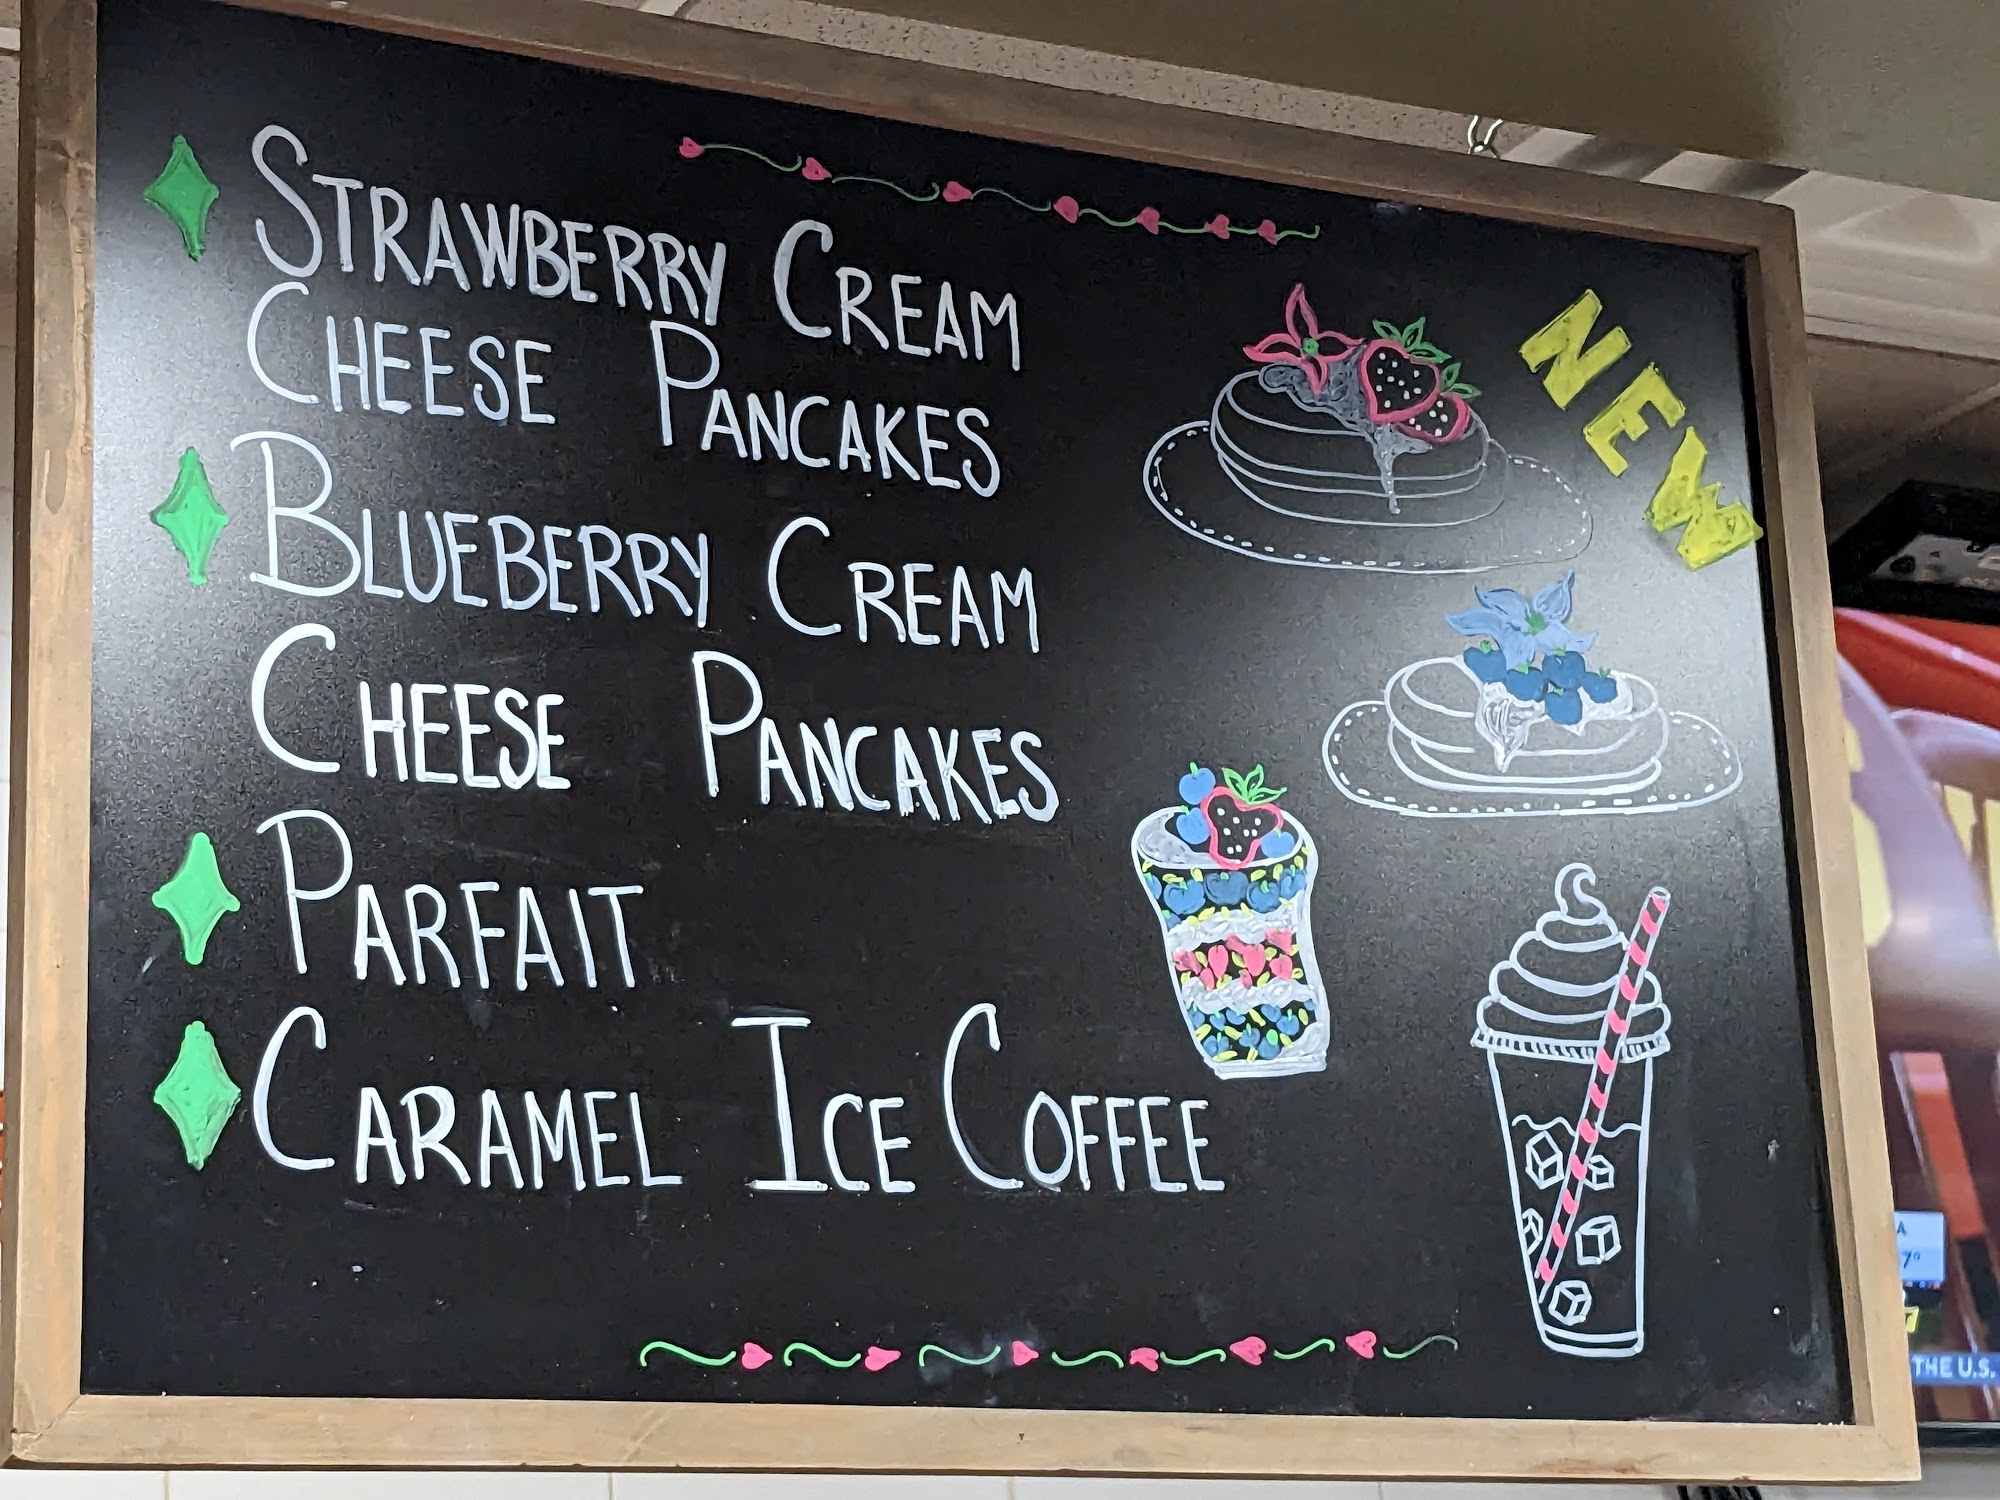 STRAWBERRY CREAM
CHEESE PANCAKES
BLUEBERRY CREAM
CHEESE PANCAKES
PARFAIT
CARAMEL ICE COFFEE
NEW
THE U.S.